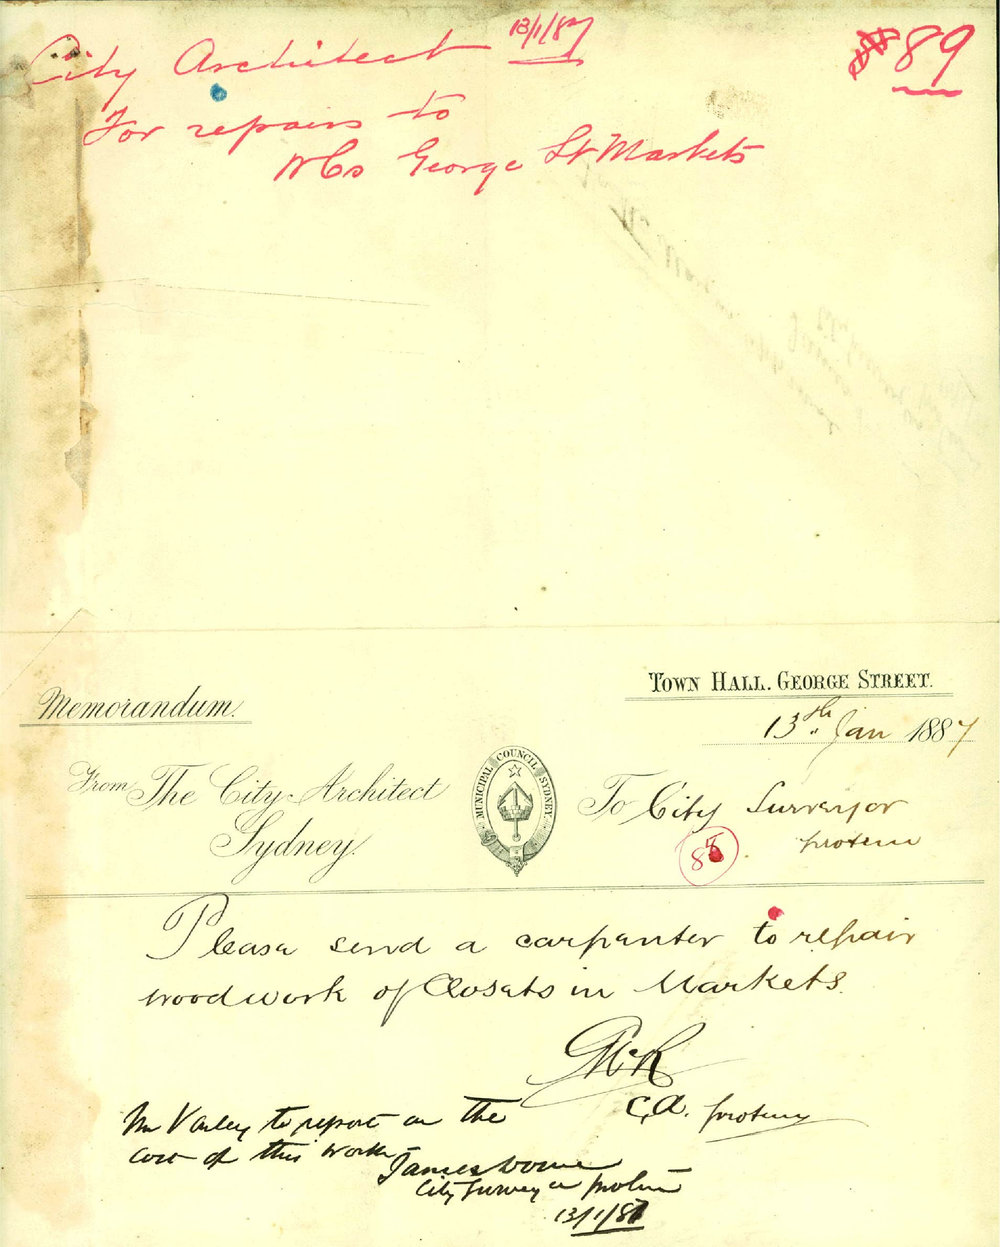 City Architect 13/1/87
89
For repairs to
WCs George St Markets
Town Hall. George Street.
Memorandum.
13th Jan 1887
From The City Architect
Sydney.
MUNICIPAL COUNCIL SYDNEY.
To City Surveyor
protem
85
Please send a carpenter to repair
woodwork of Closets in Markets.
GMcR
C.A. protem
Mr Varley to report on the
cost of this work
James
City Surveyor protem
13/1/87